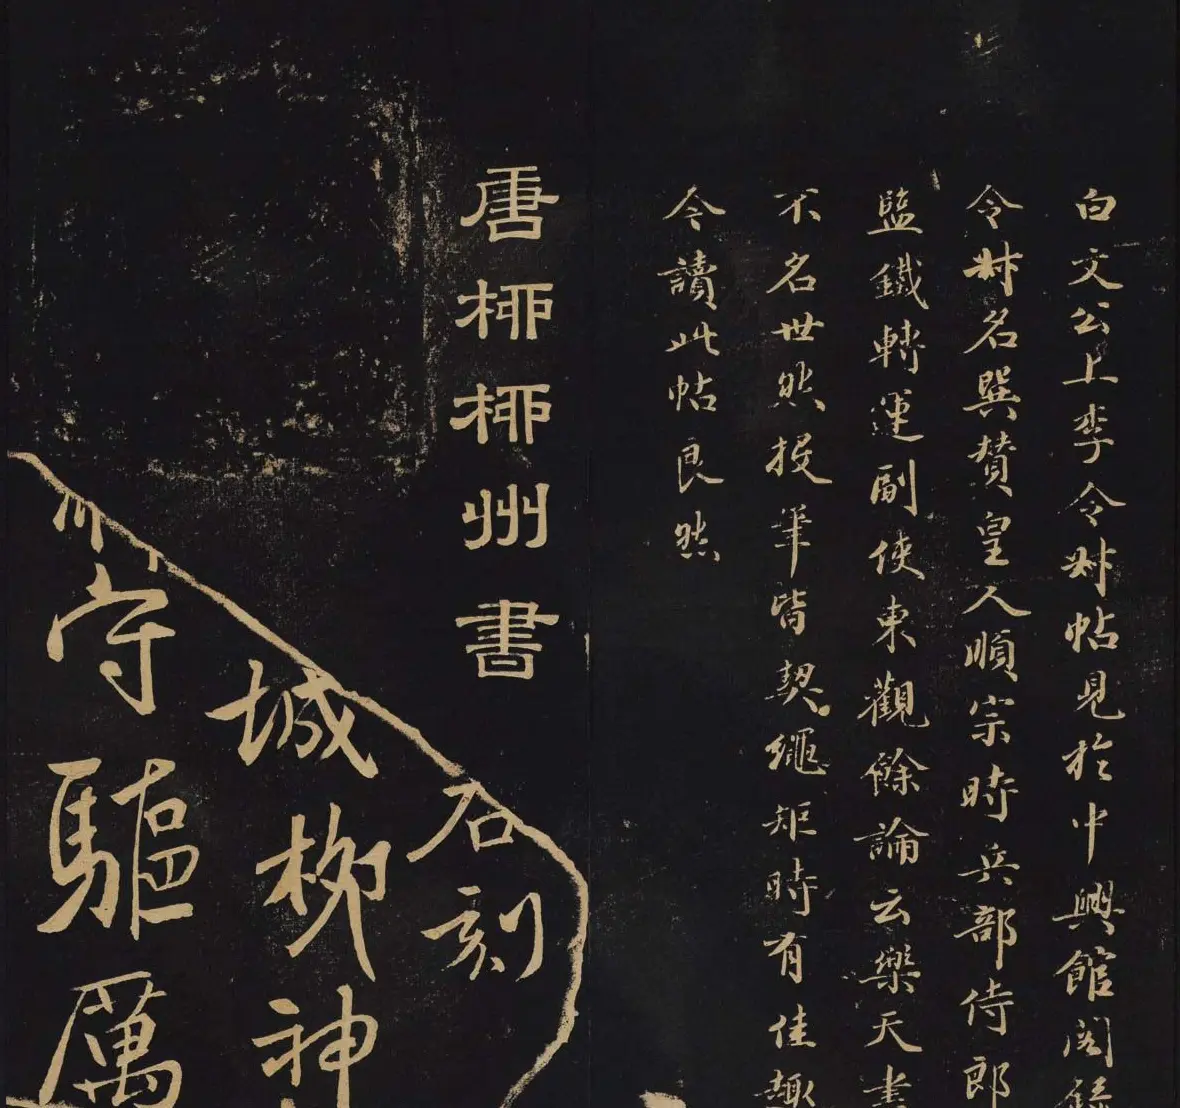 白文公上李令尉帖見於中興館閣錄
令尉名巽贊皇人順宗時兵部侍郎
監鐵轉運副使東觀餘論云樂天書
不名世然投筆皆契繩矩時有佳趣
今讀此帖良然
唐柳柳州書
石刻
城柳神
守驅厲